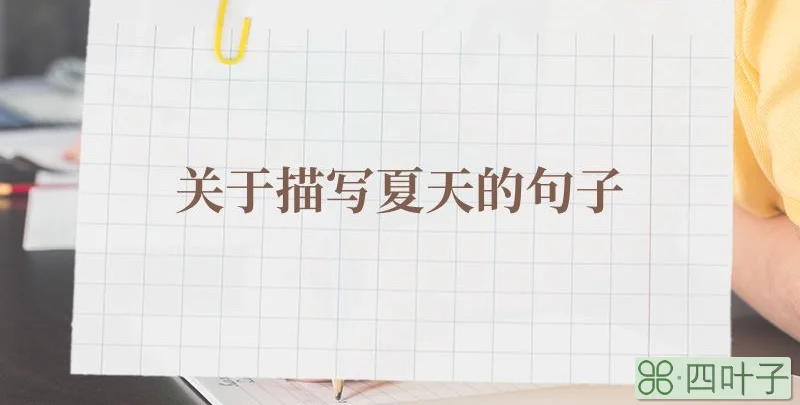 关于描写夏天的句子
四叶子